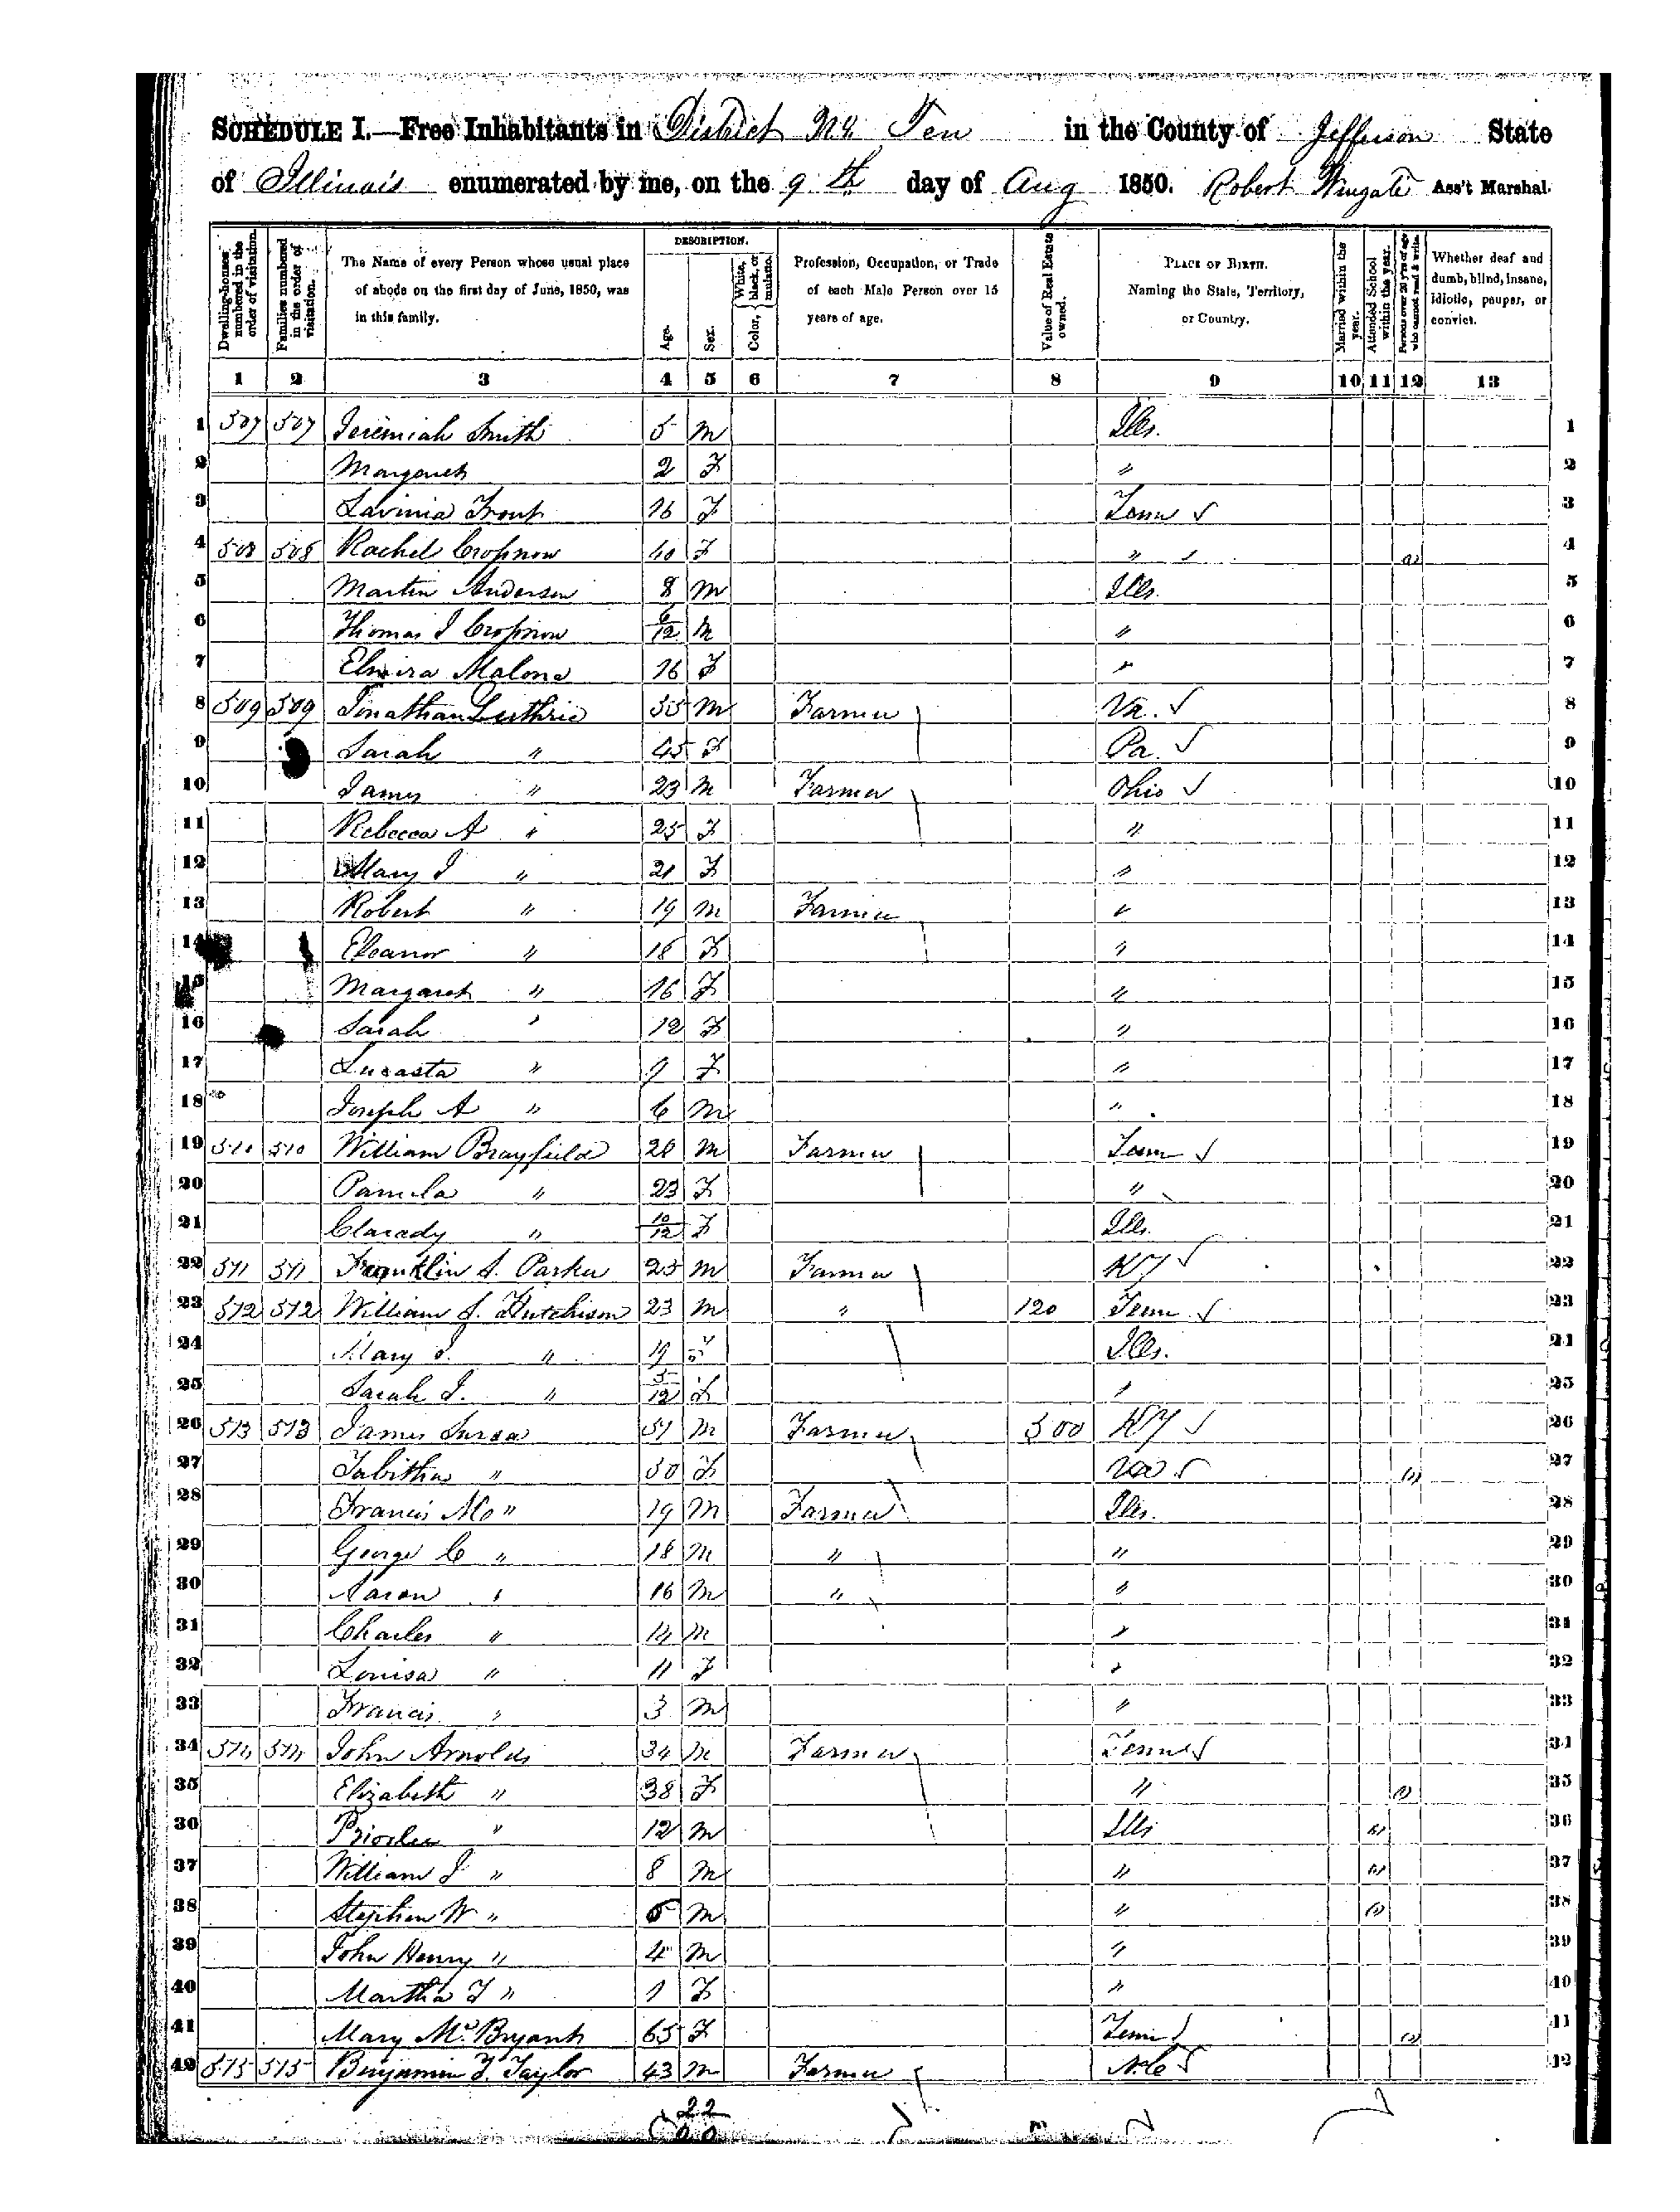 SCHEDULE I.—Free Inhabitants in District No Ten in the County of Jefferson State
of Illinois enumerated by me, on the 9th day of Aug 1850. Robert Wingate Ass't Marshal.
Dwelling-houses numbered in the order of visitation.
Families numbered in the order of visitation.
The Name of every Person whose usual place of abode on the first day of June, 1850, was in this family.
DESCRIPTION.
Age.
Sex.
Color, White, black, or mulatto.
Profession, Occupation, or Trade of each Male Person over 15 years of age.
Value of Real Estate owned.
PLACE OF BIRTH. Naming the State, Territory, or Country.
Married within the year.
Attended School within the year.
Persons over 20 y'rs of age who cannot read & write.
Whether deaf and dumb, blind, insane, idiotic, pauper, or convict.
1 2 3 4 5 6 7 8 9 10 11 12 13
1 507 507 Jeremiah Smith 5 M Ills. 1
2 Margaret 2 F " 2
3 Lavinia 16 F Tenn 3
4 508 508 Rachel 40 F " 4
5 Martin Anderson 8 M Ills. 5
6 Thomas J 6/12 M " 6
7 Elmira Malone 16 F " 7
8 509 509 Jonathan Guthrie 55 M Farmer Va. 8
9 Sarah " 45 F Pa. 9
10 James " 23 M Farmer Ohio 10
11 Rebecca A " 25 F " 11
12 Mary J " 21 F " 12
13 Robert " 19 M Farmer " 13
14 Eleanor " 18 F " 14
15 Margaret " 16 F " 15
16 Sarah " 12 F " 16
17 Lucasta " 9 F " 17
18 Joseph A " 6 M " 18
19 510 510 William Brayfield 28 M Farmer Tenn 19
20 Pamela " 23 F " 20
21 Clarady " 10/12 F Ills. 21
22 511 511 Franklin S. Parker 25 M Farmer KY 22
23 512 512 William S. Hutchison 23 M " 120 Tenn 23
24 Mary J. " 19 F Ills. 24
25 Sarah J. " 5/12 F " 25
26 513 513 James 51 M Farmer 300 KY 26
27 Tabitha " 50 F Va 27
28 Francis M " 19 M Farmer Ills. 28
29 George C " 18 M " " 29
30 Aaron " 16 M " " 30
31 Charles " 14 M " 31
32 Louisa " 11 F " 32
33 Francis " 3 M " 33
34 514 514 John Arnolds 34 M Farmer Tenn 34
35 Elizabeth " 38 F " 35
36 " 12 M Ills 36
37 William J " 8 M " 37
38 Stephen W " M " 38
39 John Henry " 4 M " 39
40 Martha J " 1 F " 40
41 Mary Mc Bryant 65 F Tenn 41
42 515 515 Benjamin F. Taylor 43 M Farmer N.C 42
22